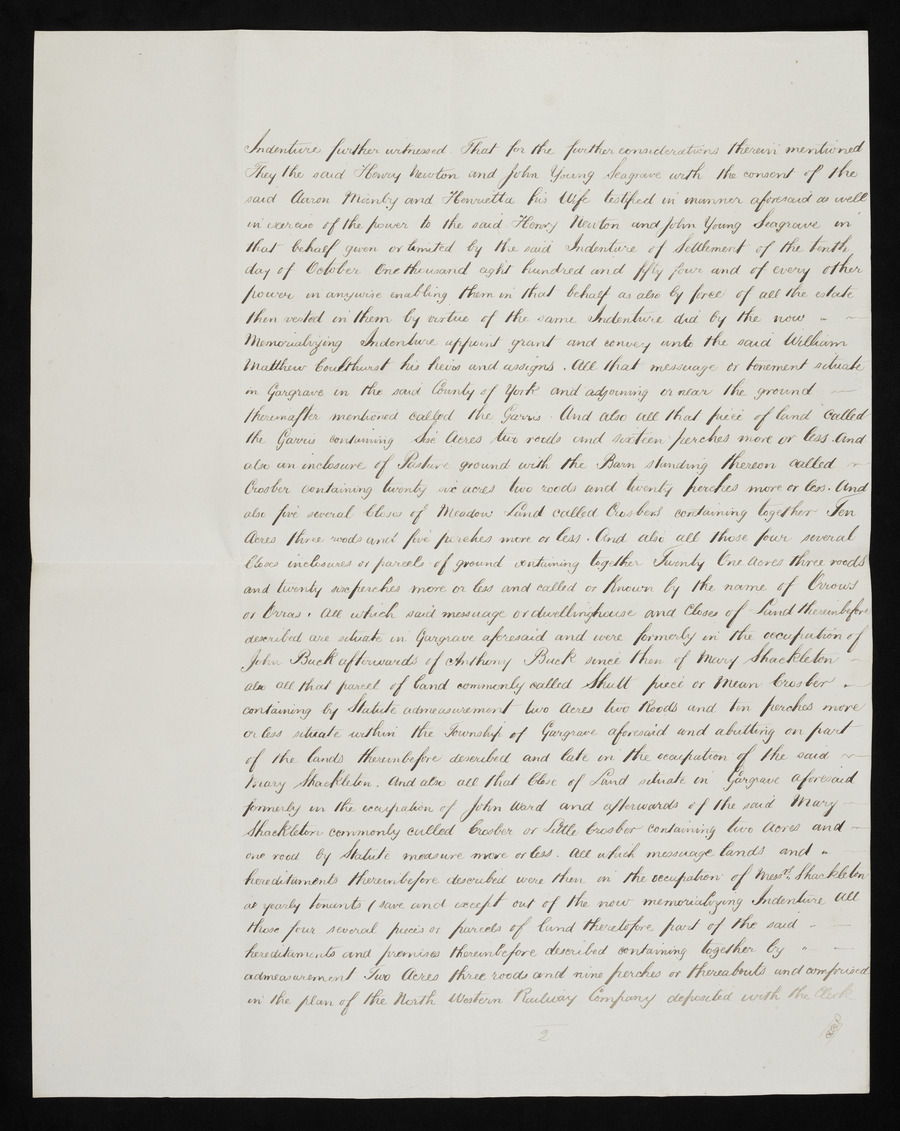 Indenture further witnessed That for the further considerations therein mentioned
They the said Henry Newton and John Young Seagrave with the consent of the
said Aaron Manby and Henrietta his Wife testified in manner aforesaid as well
in exercise of the power to the said Henry Newton and John Young Seagrave in
that behalf given or limited by the said Indenture of Settlement of the tenth
day of October One thousand eight hundred and fifty four and of every other
power in anywise enabling them in that behalf as also by force of all the estate
then vested in them by virtue of the same Indenture did by the now
Memorializing Indenture appoint grant and convey unto the said William
Matthew Coulthurst his heirs and assigns. All that messuage or tenement situate
in Gargrave in the said County of York and adjoining or near the ground
thereinafter mentioned called the Garris. And also all that piece of land called
the Garris containing Six Acres two roods and sixteen perches more or less. And
also an inclosure of Pasture ground with the Barn standing thereon called
Crosber containing twenty six acres two roods and twenty perches more or less. And
also five several Closes of Meadow Land called Crosbers containing together Ten
Acres three roods and five perches more or less. And also all those four several
Closes inclosures or parcels of ground containing together Twenty One Acres three roods
and twenty six perches more or less and called or known by the name of Orrows
or Orras. All which said messuage or dwellinghouse and Close of Land thereinbefore
described are situate in Gargrave aforesaid and were formerly in the occupation of
John Buck afterwards of Anthony Buck since then of Mary Shackleton
also all that parcel of land commonly called Shutt piece or Mean Crosber
containing by Statute admeasurement two Acres two Roods and ten perches more
or less situate within the Township of Gargrave aforesaid and abutting on part
of the lands thereinbefore described and late in the occupation of the said
Mary Shackleton. And also all that Close of Land situate in Gargrave aforesaid
formerly in the occupation of John Ward and afterwards of the said Mary
Shackleton commonly called Crosber or Little Crosber containing two Acres and
one rood by Statute measure more or less. All which messuage lands and
hereditaments thereinbefore described were then in the occupation of Messrs. Shackleton
as yearly tenants (save and except out of the now memorializing Indenture All
those four several pieces or parcels of land theretofore part of the said
hereditaments and premises thereinbefore described containing together by
admeasurement Two Acres three roods and nine perches or thereabouts and comprised
in the plan of the North Western Railway Company deposited with the Clerk
2